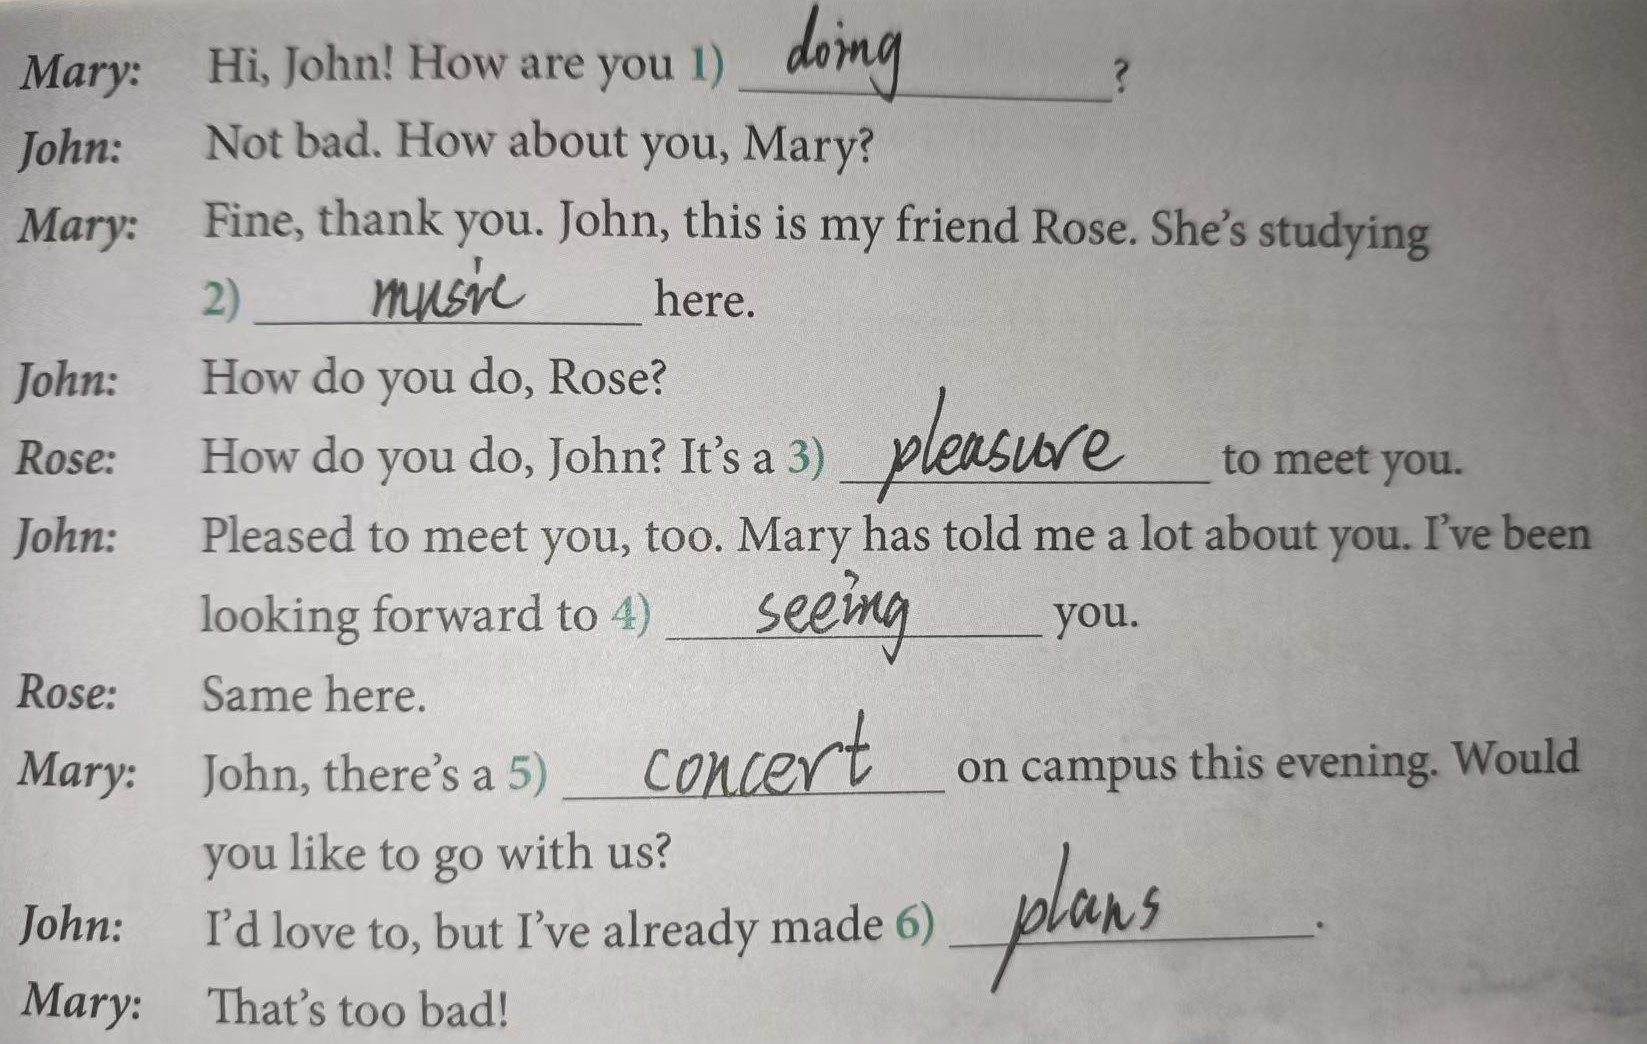 Mary: Hi, John! How are you 1) doing ?
John: Not bad. How about you, Mary?
Mary: Fine, thank you. John, this is my friend Rose. She's studying
2) music here.
John: How do you do, Rose?
Rose: How do you do, John? It's a 3) pleasure to meet you.
John: Pleased to meet you, too. Mary has told me a lot about you. I've been
looking forward to 4) seeing you.
Rose: Same here.
Mary: John, there's a 5) concert on campus this evening. Would
you like to go with us?
John: I'd love to, but I've already made 6) plans .
Mary: That's too bad!